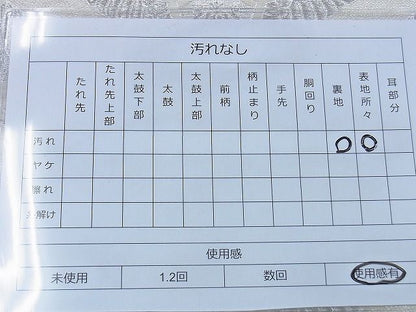 汚れなし
たれ先 たれ先上部 太鼓下部 太鼓 太鼓上部 前柄 柄止まり 手先 胴回り 裏地 表地所々 耳部分
汚れ ○ ○
ヤケ
擦れ
解け
使用感
未使用 1.2回 数回 使用感有